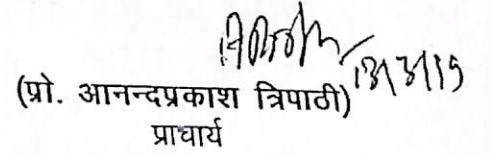 13/3/19
(प्रो. आनन्दप्रकाश त्रिपाठी)
प्राचार्य